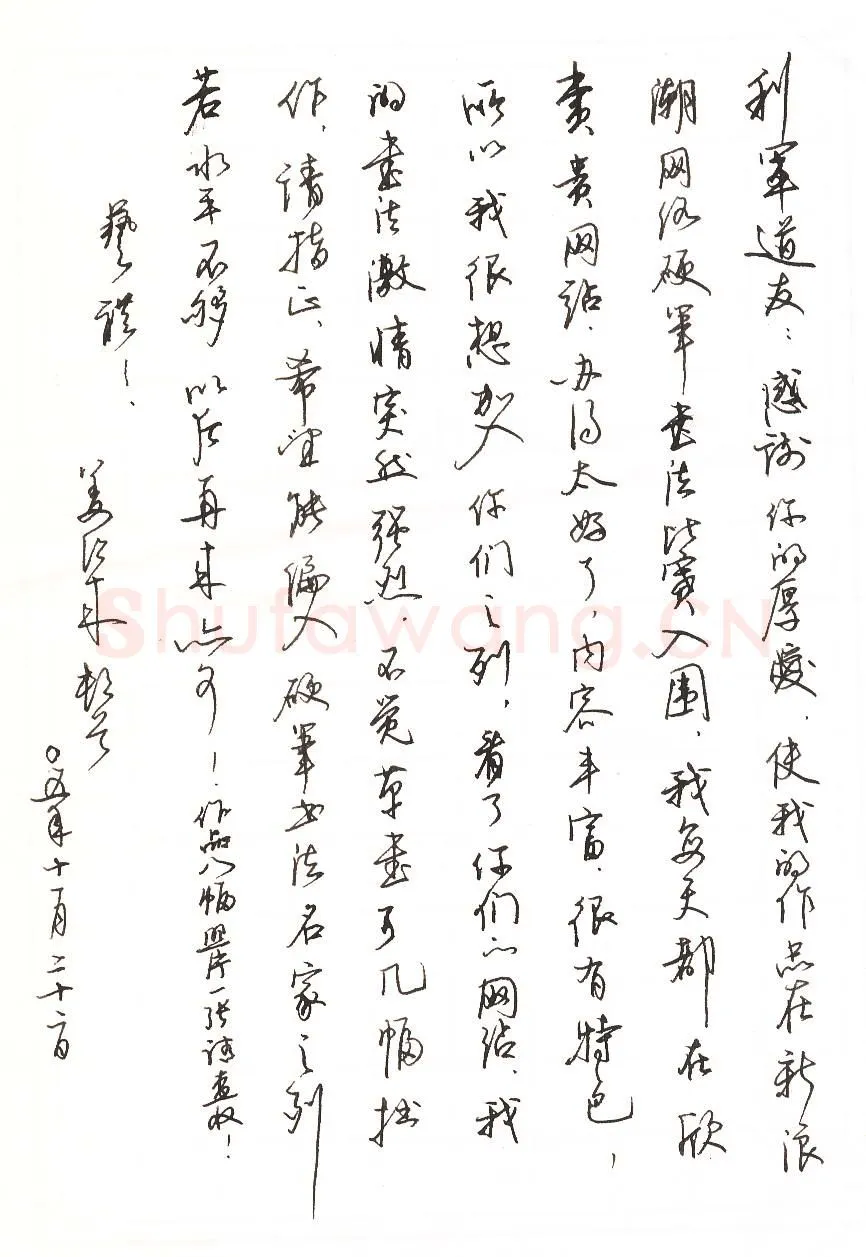 利军道友：感谢你的厚爱，使我的作品在新浪
潮网络硬笔书法比赛入围，我每天都在欣
赏贵网站，办得太好了，内容丰富，很有特色，
所以我很想加入你们之列，看了你们的网站，我
的书法激情突然强烈，不觉草书了几幅拙
作，请指正，希望能编入硬笔书法名家之列
若水平不够 以后再来 ！作品八幅 照片一张 请查收！
藝祺！
姜
〇五年十一月二十二日
Shufawang.CN